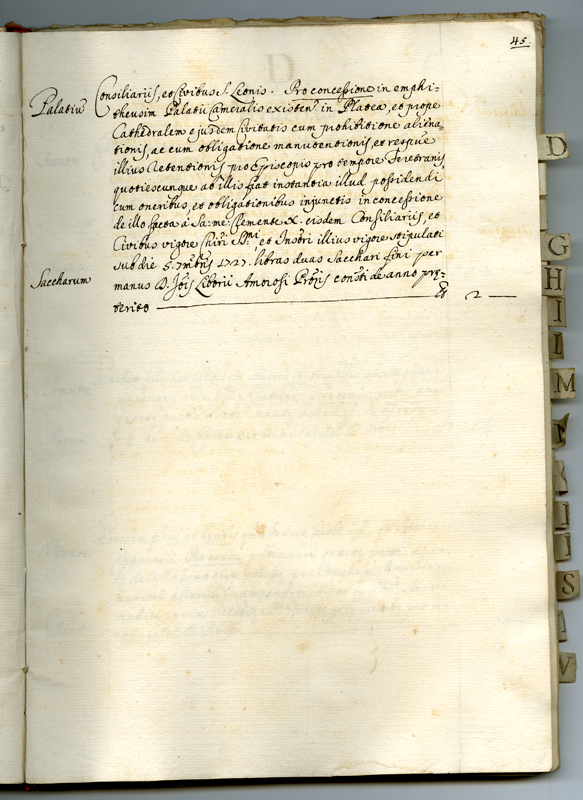 45.
Palatiũ
Consiliariis, et Civibus S. Leonis. Pro concessione in emphi=
theusim Palatii Cameralis existen: in Platea, et prope
Cathedralem ejusdem Civitatis cum prohibitione aliena=
tionis, ac cum obligatione manutentionis, et respuè
illius retentionis pro Episcopis pro tempore Feretranis
quotiescunque ab illis fiat instantia illud possidendi
cum oneribus et obligationibus injunctis in concessione
de illo facta à Sa: me: Clemente X. eisdem Consiliariis, et
Civibus vigore Chiri S.mi, et Instri illius vigore stipulati
sub die 5. 7mbris 1727. libras duas Sacchari fini per
Saccharum
manus D. Jois Liborii Amorosi consti de anno prę=
terito
2
D
G
H
I
L
M
S
V